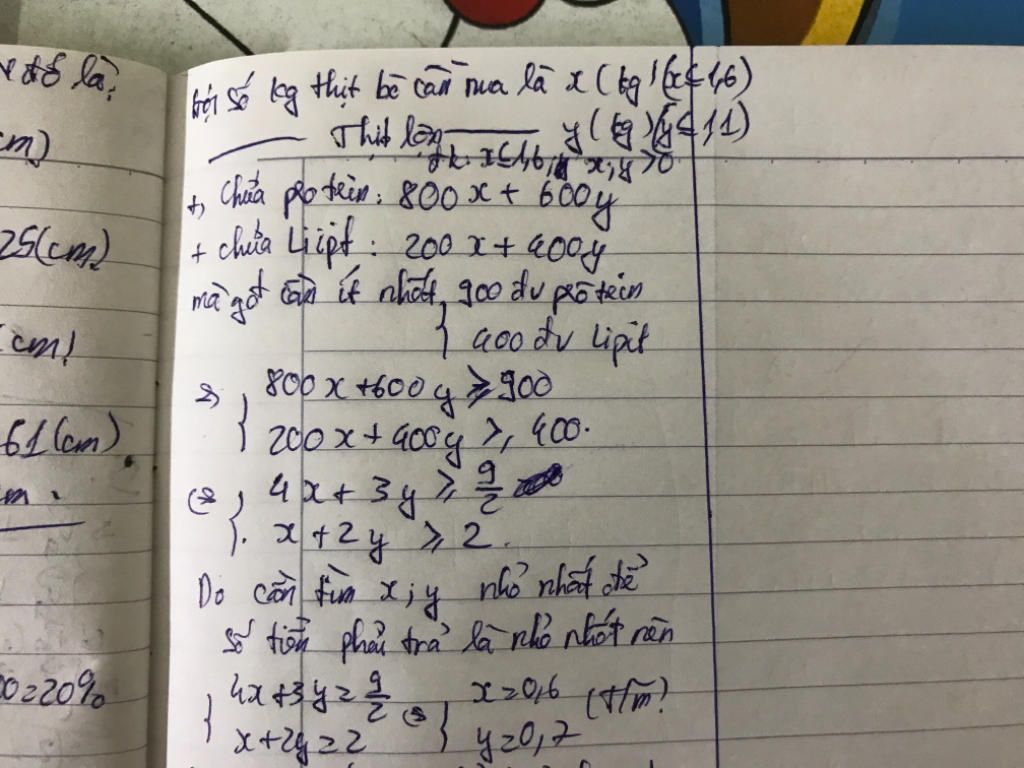 đó là:
cm)
25(cm)
(cm)
61(cm)
cm.
00=20%
Gọi số kg thịt bò cần mua là x (kg) (x ≤ 1,6)
Thịt lợn y (kg) (y ≤ 1,1)
đk: x ≤ 1,6, x; y > 0
+, chứa protein: 800x + 600y
+ chứa Liipt: 200x + 400y
mà gđ cần ít nhất 900 đv protein
400 đv Lipit
=> { 800x + 600y ≥ 900
200x + 400y ≥ 400.
<=> { 4x + 3y ≥ 9/2
x + 2y ≥ 2.
Do cần tìm x; y nhỏ nhất để
số tiền phải trả là nhỏ nhất nên
{ 4x + 3y = 9/2 <=> { x = 0,6 (t/m)
x + 2y = 2 y = 0,7